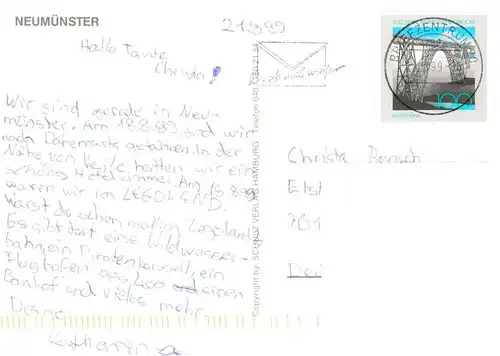 NEUMÜNSTER
21.8.99
Hallo Tante
Christa!
Wir sind gerade in Neu-
münster. Am 18.8.99 sind wir
nach Dänemark gefahren. In der
Nähe von Vejle hatten wir ein
schönes Hotelzimmer. Am 19.8.99
waren wir im LEGOLAND.
Warst du schon mal im Legoland
Es gibt dort eine Wildwasser-
bahn, ein Piratenkarusell, ein
Flughafen aus Lego einen
Banhof und vieles mehr.
Deine
Katharina
Copyright by SCHÖNING VERLAG HAMBURG Telefon 040
BRIEFZENTRUM
100
Christa
701